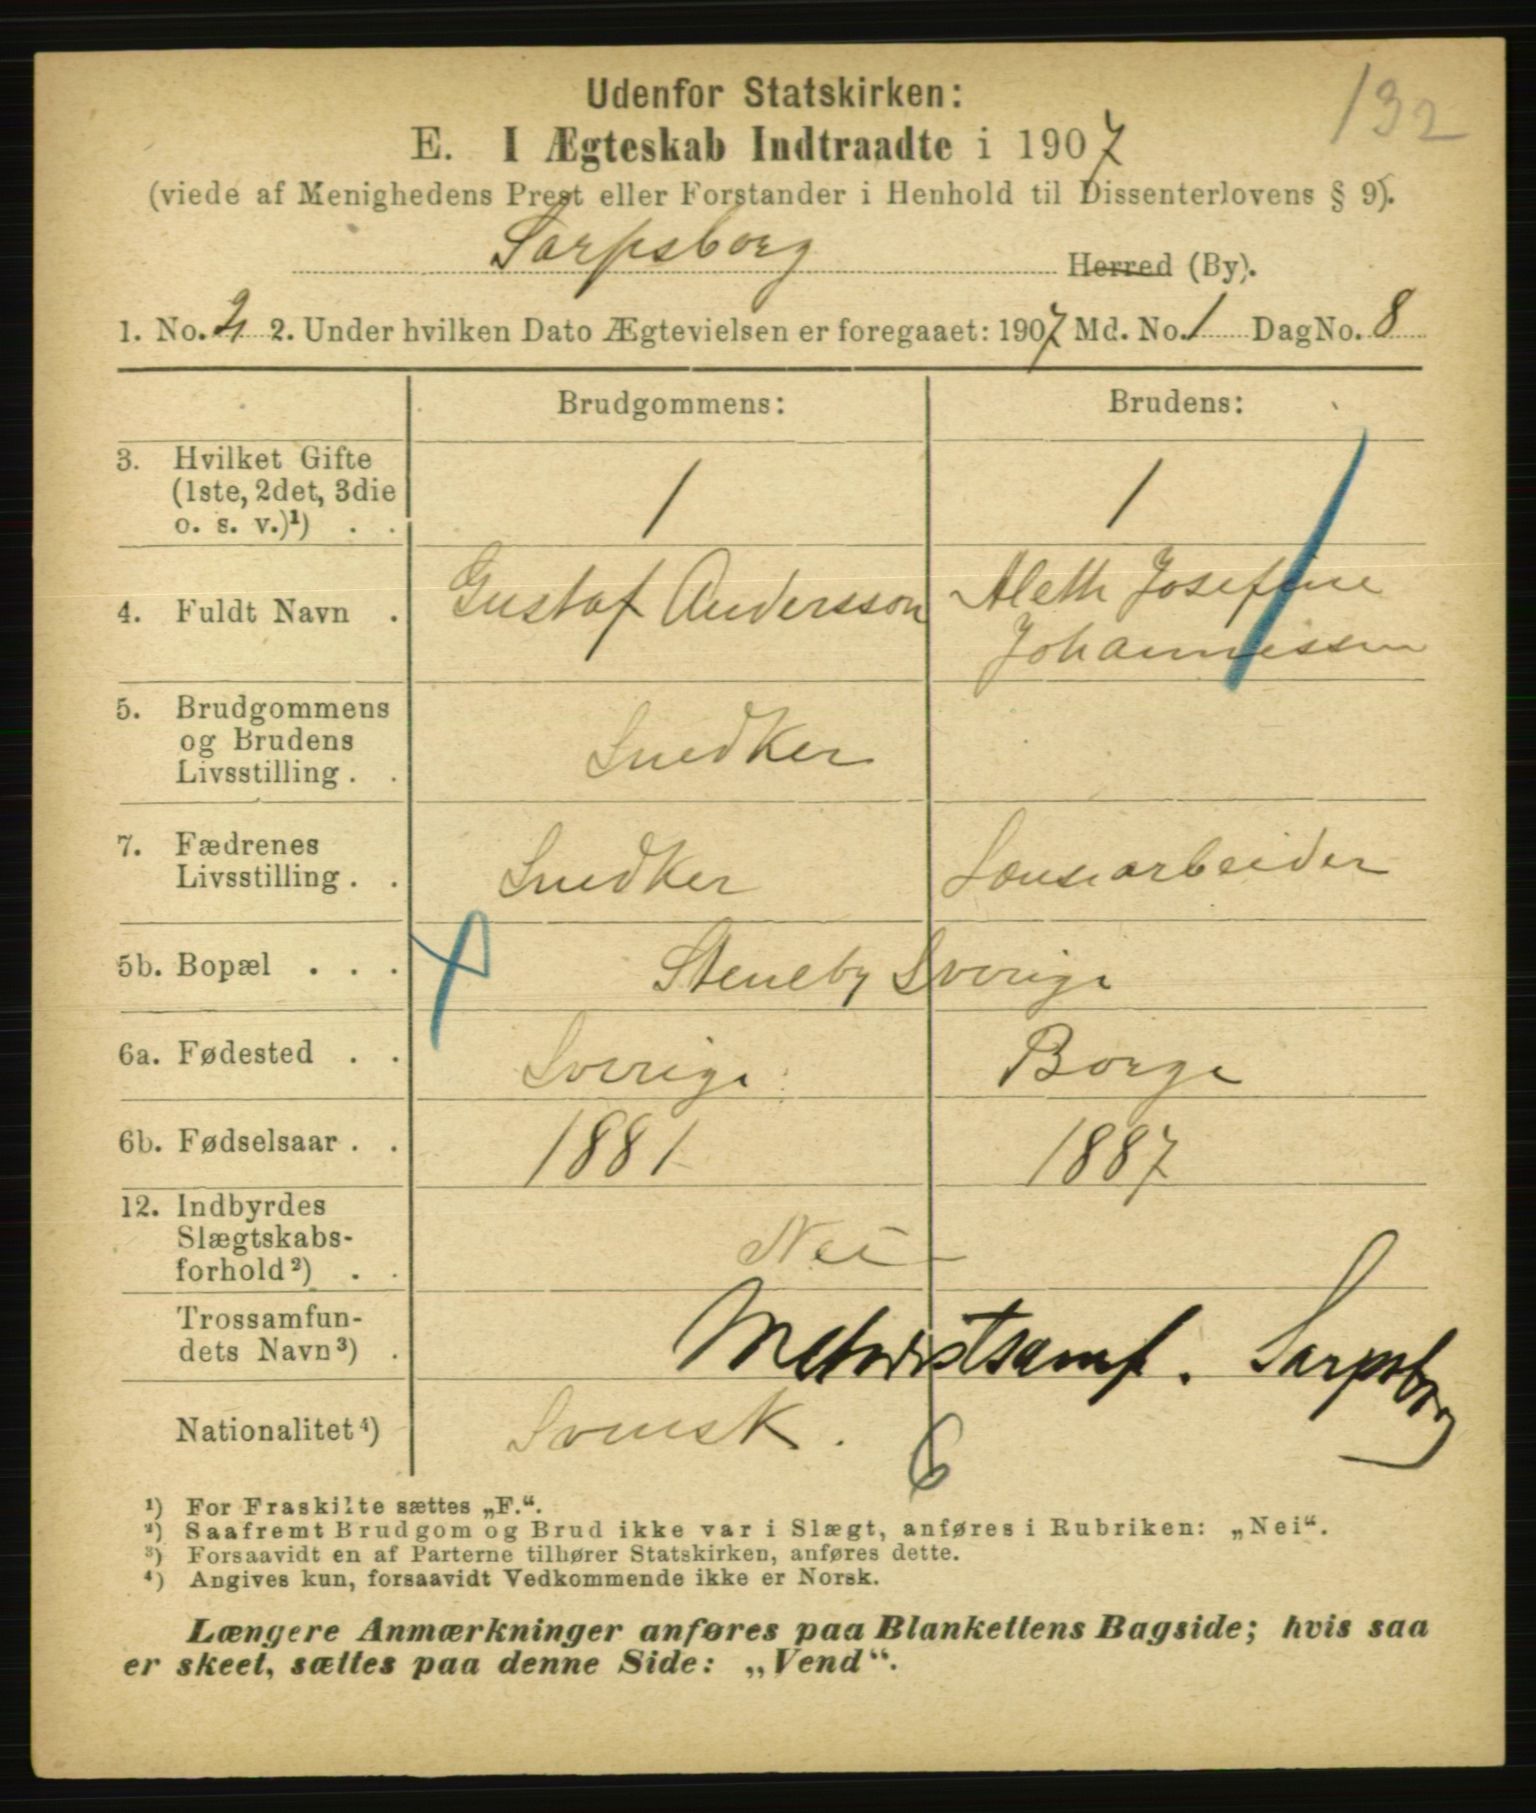 132
Udenfor Statskirken:
E. I Ægteskab Indtraadte i 1907
(viede af Menighedens Prest eller Forstander i Henhold til Dissenterlovens § 9).
Sarpsborg Herred (By).
1. No. 2. Under hvilken Dato Ægtevielsen er foregaaet: 1907 Md. No. 1 Dag No. 8
Brudgommens: Brudens:
3. Hvilket Gifte
(1ste, 2det, 3die
o. s. v.)¹) . . 1 1
4. Fuldt Navn . Gustaf Andersson Aleth Josefine
Johannissen
5. Brudgommens
og Brudens
Livsstilling . . Snedker
7. Fædrenes
Livsstilling . . Snedker arbeider
5b. Bopæl . . . Steneby Sverige
6a. Fødested . . Sverige Borge
6b. Fødselsaar . . 1881 1887
12. Indbyrdes
Slægtskabs-
forhold²) . . Nei
Trossamfun-
dets Navn³) . Metodistsamf. Sarpsborg
Nationalitet⁴) Svensk. 6
¹) For Fraskilte sættes „F.“.
²) Saafremt Brudgom og Brud ikke var i Slægt, anføres i Rubriken: „Nei“.
³) Forsaavidt en af Parterne tilhører Statskirken, anføres dette.
⁴) Angives kun, forsaavidt Vedkommende ikke er Norsk.
Længere Anmærkninger anføres paa Blankettens Bagside; hvis saa
er skeet, sættes paa denne Side: „Vend“.